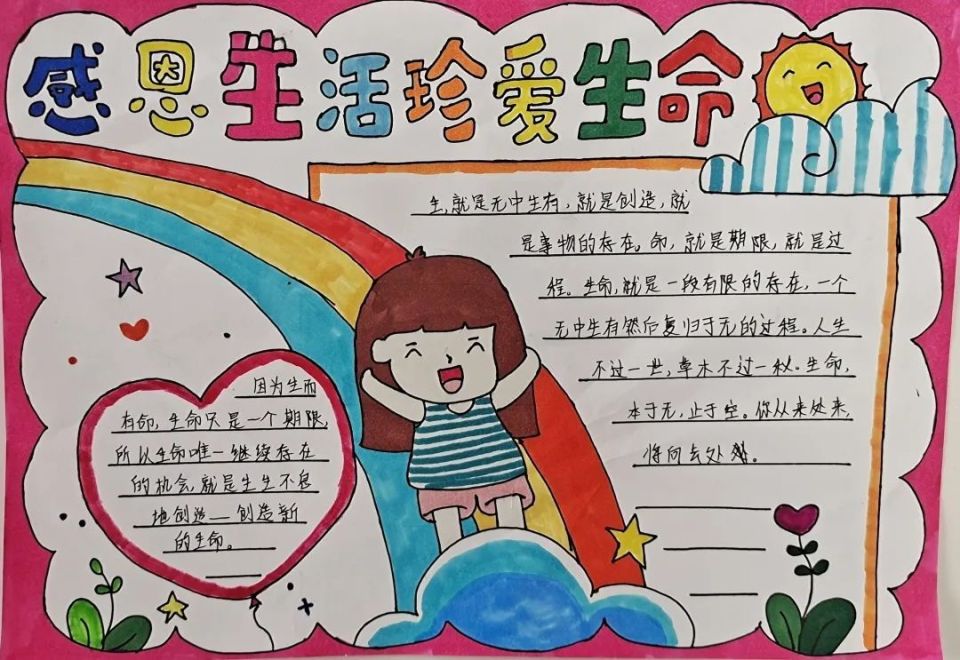 感恩生活珍爱生命
生,就是无中生有,就是创造,就
是事物的存在。命,就是期限,就是过
程。生命,就是一段有限的存在,一个
无中生有然后复归于无的过程。人生
不过一世,草木不过一秋。生命,
本于无,止于空。你从来处来,
将向去处
因为生而
有命,生命只是一个期限,
所以生命唯一继续存在
的机会,就是生生不息
地创造——创造新
的生命。